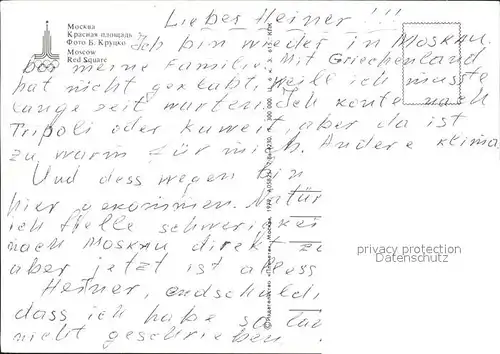 Москва
Красная площадь
Фото Б. Круцко
Moscow
Red Square
Lieber Heiner !!!
Ich bin wieder in Moskau.
bei meine Familie. Mit Griechenland
hat nicht geklabt, weile ich musste
lange zeit warten. Ich konte nach
Tripoli oder Kuweit, aber da ist
zu warm für mich. Andere klima
Und dess wegen bin
hier gekommen. Natür
ich stelle schwerickei
nach Moskau direkt zu
aber jetzt ist aless
Heiner, endschuldi
dass ich habe so lan
nicht geschrieben
privacy protection
Datenschutz
© Издательство «Планета», Москва, 1979